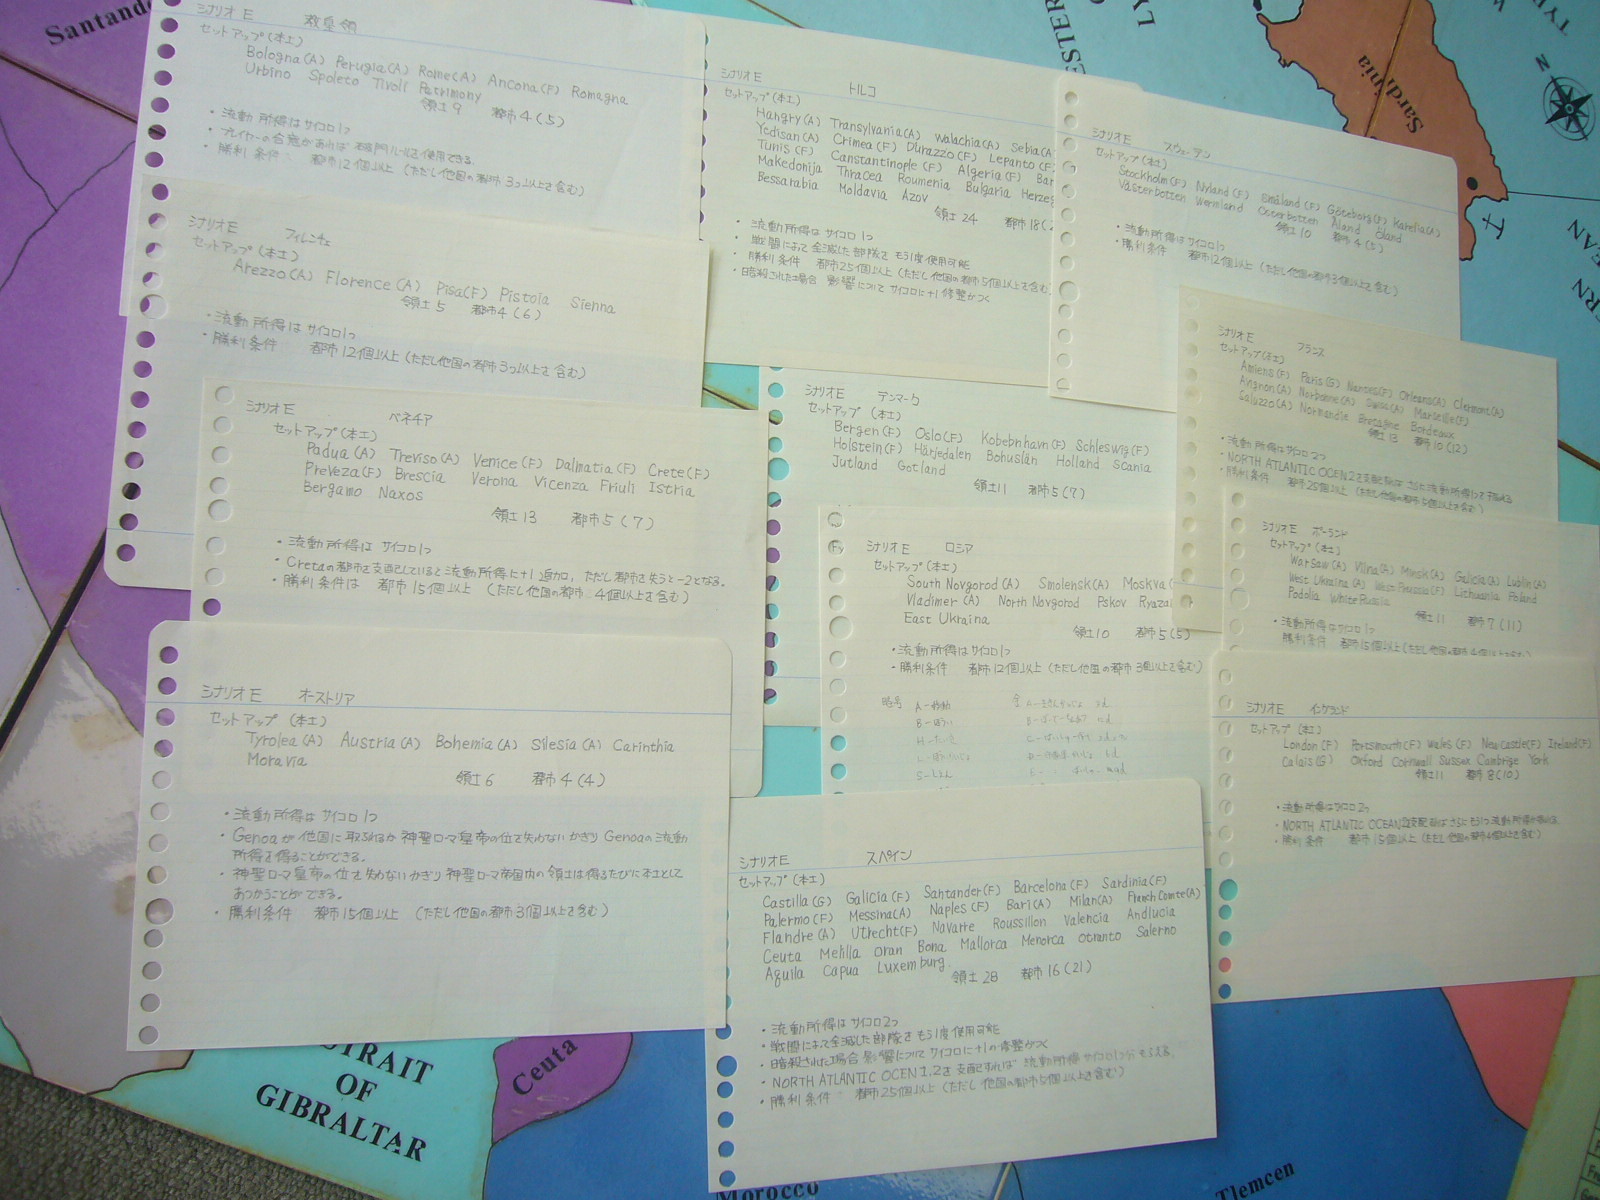 シナリオE 教皇領
セットアップ(本土)
Bologna(A) Perugia(A) Rome(A) Ancona(F) Romagna
Urbino Spoleto Tivoli Patrimony
領土9 都市4(5)
・流動所得はサイコロ1つ
・プレイヤーの合意があれば 破門ルールを使用できる.
・勝利条件: 都市12個以上 (ただし他国の都市3つ以上を含む)
シナリオE フィレンチェ
セットアップ(本土)
Arezzo(A) Florence(A) Pisa(F) Pistoia Sienna
領土5 都市4(6)
・流動所得はサイコロ1つ
・勝利条件 都市12個以上 (ただし他国の都市3つ以上を含む)
シナリオE ベネチア
セットアップ(本土)
Padua(A) Treviso(A) Venice(F) Dalmatia(F) Crete(F)
Preveza(F) Brescia Verona Vicenza Friuli Istria
Bergamo Naxos
領土13 都市5(7)
・流動所得はサイコロ1つ
・Cretaの都市を支配していると流動所得に+1追加, ただし都市を失うと-2となる.
・勝利条件は 都市15個以上 (ただし他国の都市 4個以上を含む)
シナリオE オーストリア
セットアップ(本土)
Tyrolea(A) Austria(A) Bohemia(A) Silesia(A) Carinthia
Moravia
領土6 都市4(4)
・流動所得はサイコロ1つ
・Genoaが他国に取られるか神聖ローマ皇帝の位を失わないかぎりGenoaの流動
所得を得ることができる.
・神聖ローマ皇帝の位を失わないかぎり神聖ローマ帝国内の領土は得るたびに本土として
あつかうことができる.
・勝利条件 都市15個以上 (ただし他国の都市3個以上を含む)
シナリオE トルコ
セットアップ(本土)
Hangry(A) Transylvania(A) Walachia(A) Sebia(A)
Yedisan(A) Crimea(F) Durazzo(F) Lepanto(F)
Tunis(F) Canstantinople(F) Algeria(F) Bar
Makedonija Thracea Roumenia Bulgaria Herzeg
Bessarabia Moldavia Azov
領土24 都市18(2
・流動所得はサイコロ1つ
・戦闘によって全滅した部隊をもう1度使用可能
・勝利条件 都市25個以上 (ただし他国の都市5個以上を含む
・暗殺された場合 影響についてサイコロに+1修整がつく
シナリオE デンマーク
セットアップ(本土)
Bergen(F) Oslo(F) Kobebnhavn(F) Schleswig(F)
Holstein(F) Härjedalen Bohuslän Holland Scania
Jutland Gotland
領土11 都市5(7)
シナリオE ロシア
セットアップ(本土)
South Novgorod(A) Smolensk(A) Moskva(
Vladimer(A) North Novgorod Pskov Ryaza
East Ukraina
領土10 都市5(5)
・流動所得はサイコロ1つ
・勝利条件 都市12個以上 (ただし他国の都市3個以上を含む)
シナリオE スペイン
セットアップ(本土)
Castilla(G) Galicia(F) Santander(F) Barcelona(F) Sardinia(F)
Palermo(F) Messina(A) Naples(F) Bari(A) Milan(A) Franch Comte(A)
Flandre(A) Utrecht(F) Navarre Roussillon Valencia Andlucia
Ceuta Melilla Oran Bona Mallorca Menorca Otranto Salerno
Aquila Capua Luxemburg.
領土28 都市16(21)
・流動所得はサイコロ2つ
・戦闘によって全滅した部隊をもう1度使用可能
・暗殺された場合影響についてサイコロに+1の修整がつく
・NORTH ATLANTIC OCEN 1,2を支配すれば 流動所得サイコロ1つ分もらえる.
・勝利条件: 都市25個以上 (ただし他国の都市5個以上を含む)
シナリオE スウェーデン
セットアップ(本土)
Stockholm(F) Nyland(F) Småland(F) Göteborg(F) Karelia(A)
Västerbotten Wermland Österbotten Åland Öland
領土10 都市4(5)
・流動所得はサイコロ1つ
・勝利条件 都市12個以上 (ただし他国の都市3個以上を含む)
シナリオE フランス
セットアップ(本土)
Amiens(F) Paris(G) Nantes(F) Orleans(A) Clermont(A)
Avignon(A) Narbonne(A) Swiss(A) Marseille(F)
Saluzzo(A) Normandie Bretagne Bordeaux
領土13 都市10(12)
・流動所得はサイコロ2つ
・NORTH ATLANTIC OCEN 2を支配すれば
・勝利条件 都市25個以上 (ただし他国の都市5個以上を含む)
シナリオE ポーランド
セットアップ(本土)
Warsaw(A) Vilna(A) Minsk(A) Galicia(A) Lublin(A)
West Ukraina(A) West Preussia(F) Lithuania Poland
Podolia White Russia
領土11 都市7(11)
・流動所得はサイコロ1つ
・勝利条件 都市15個以上 (ただし他国の都市4個以上を含む)
シナリオE イングランド
セットアップ(本土)
London(F) Portsmouth(F) Wales(F) New Castle(F) Ireland(F)
Calais(G) Oxford Cornwall Sussex Cambrige York
領土11 都市8(10)
・流動所得はサイコロ2つ
・NORTH ATLANTIC OCEAN
・勝利条件 都市15個以上 (ただし他国の都市4個以上を含む)
Santand
Sardinia
N
TRAIT
OF
GIBRALTAR
Ceuta
Morocco
Tlemcen